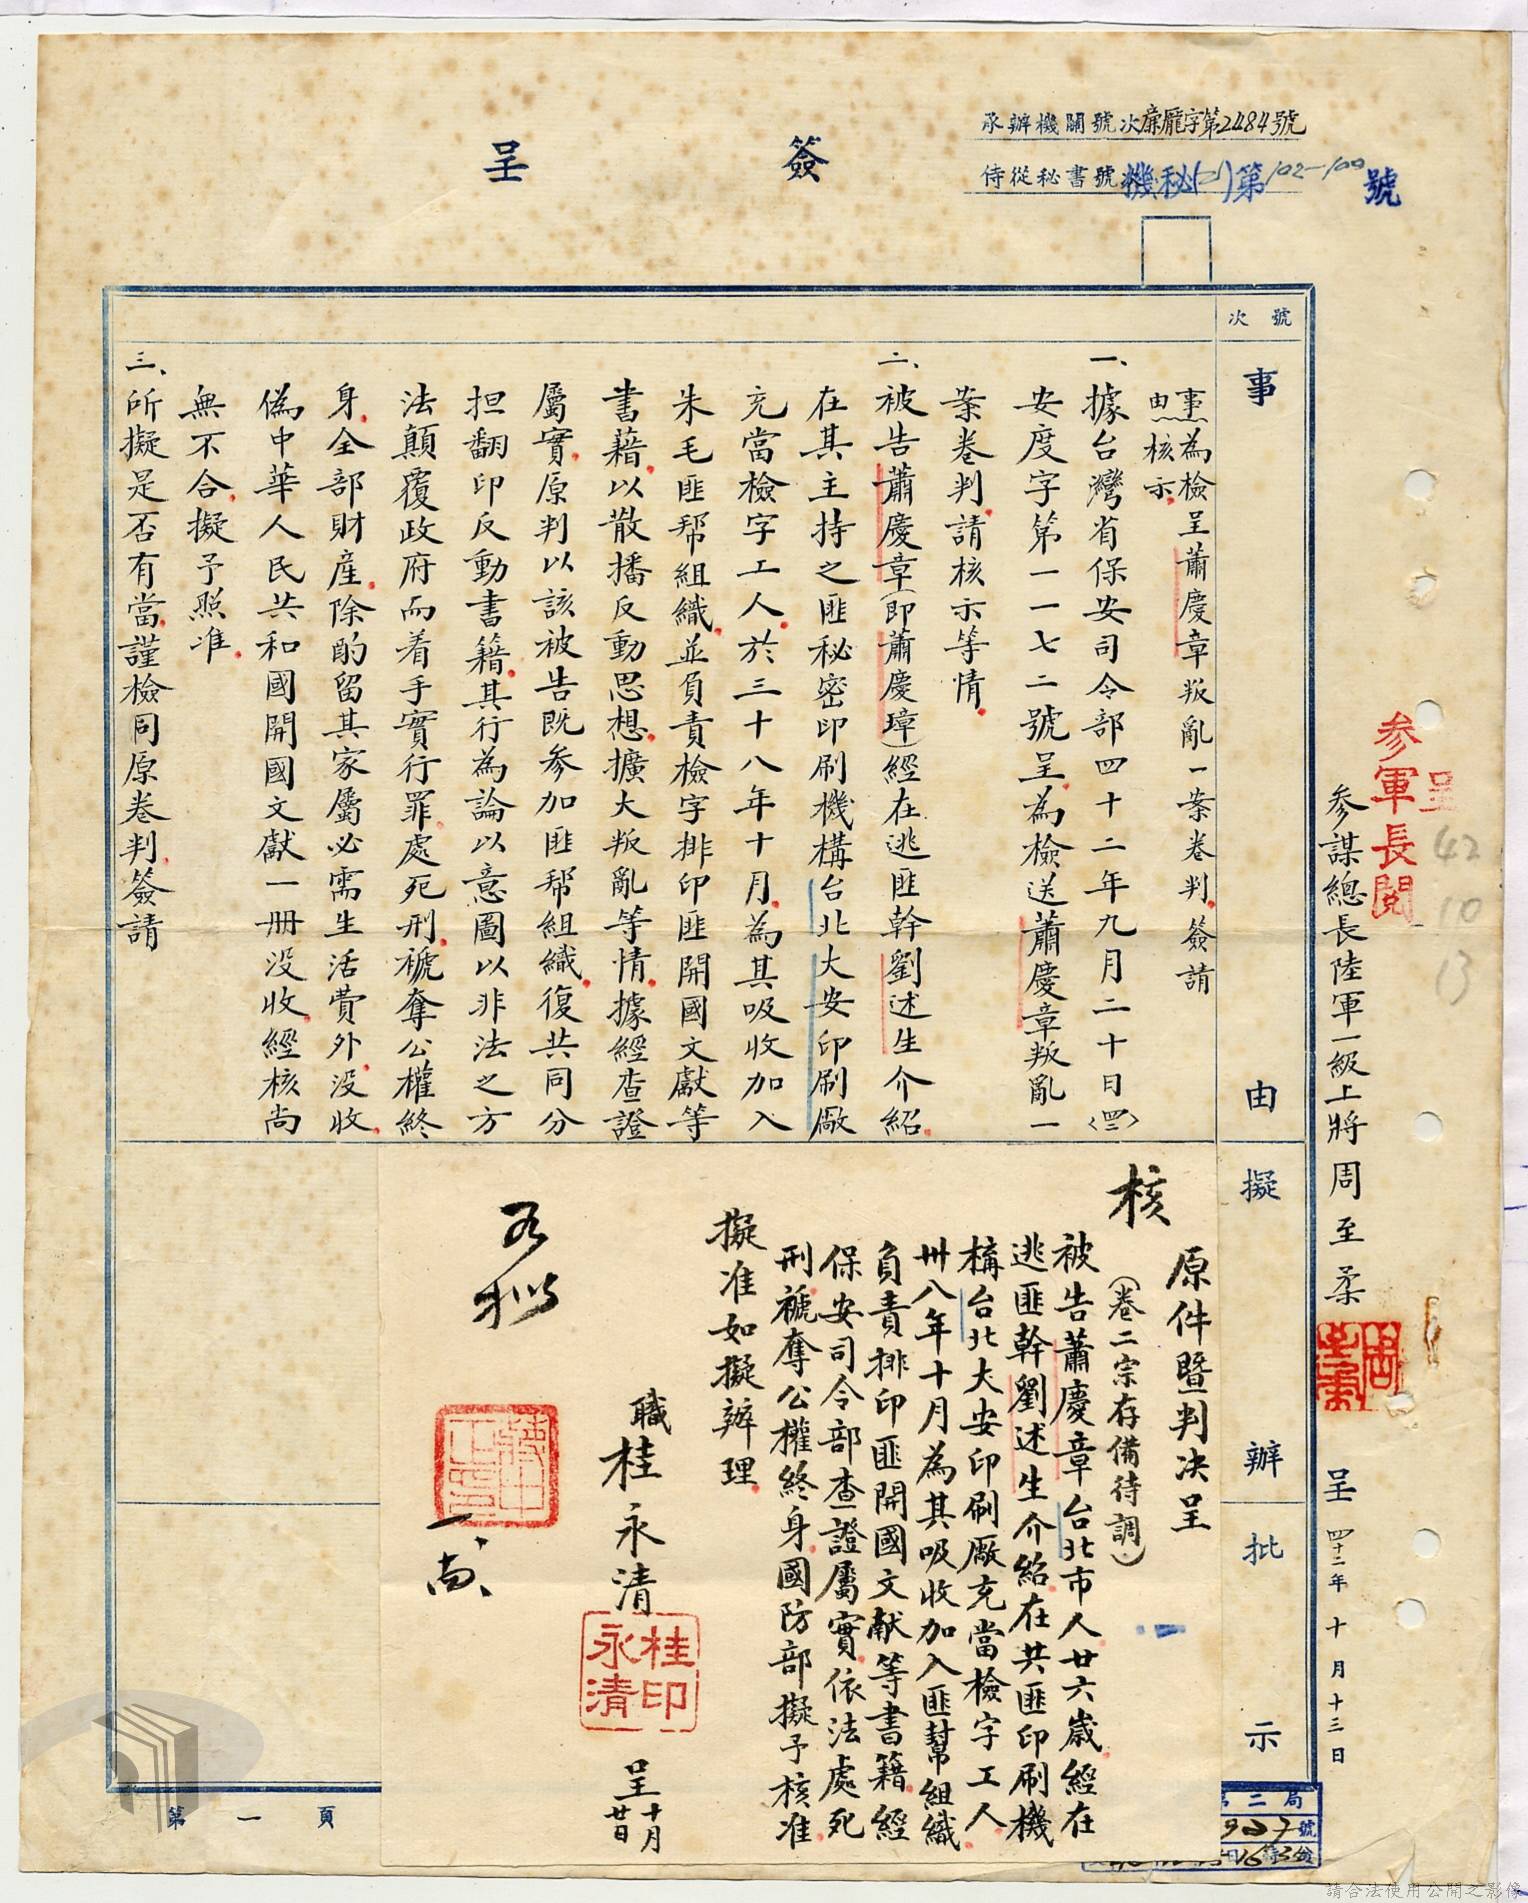 簽呈
承辦機關號次 廉龐字第2484號
侍從秘書號次 機秘(二)第102-100號
號次
事由
擬辦
批示
事由：為檢呈蕭慶章叛亂一案卷判簽請
核示
一、據台灣省保安司令部四十二年九月二十日〈四二〉
安度字第一一七二號呈為檢送蕭慶章叛亂一
案卷判請核示等情
二、被告蕭慶章(即蕭慶璋)經在逃匪幹劉述生介紹
在其主持之匪秘密印刷機構台北大安印刷廠
充當檢字工人於三十八年十月為其吸收加入
朱毛匪幫組織並負責檢字排印匪開國文獻等
書藉以散播反動思想擴大叛亂等情據經查證
屬實原判以該被告既參加匪幫組織復共同分
担翻印反動書籍其行為論以意圖以非法之方
法顛覆政府而着手實行罪處死刑褫奪公權終
身全部財產除酌留其家屬必需生活費外沒收
偽中華人民共和國開國文獻一冊沒收經核尚
無不合擬予照准
三、所擬是否有當謹檢同原卷判簽請
參謀總長陸軍一級上將周至柔
呈 四十二年十月十三日
參軍長閱
呈
42
10
13
核
原件暨判決呈
(卷二宗存備待調)
被告蕭慶章台北市人廿六歲經在
逃匪幹劉述生介紹在共匪印刷機
構台北大安印刷廠充當檢字工人
卅八年十月為其吸收加入匪幫組織
負責排印匪開國文献等書籍經
保安司令部查證屬實依法處死
刑褫奪公權終身國防部擬予核准
擬准如擬辦理
職桂永清
桂永清印
呈 十月廿日
如擬
蔣中正印
第一頁
第二局
號
請合法使用公開之影像